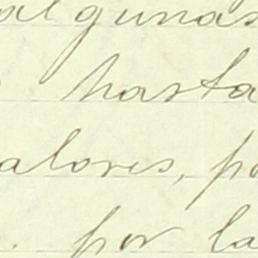 algunas
hasta
alores, p
. por la